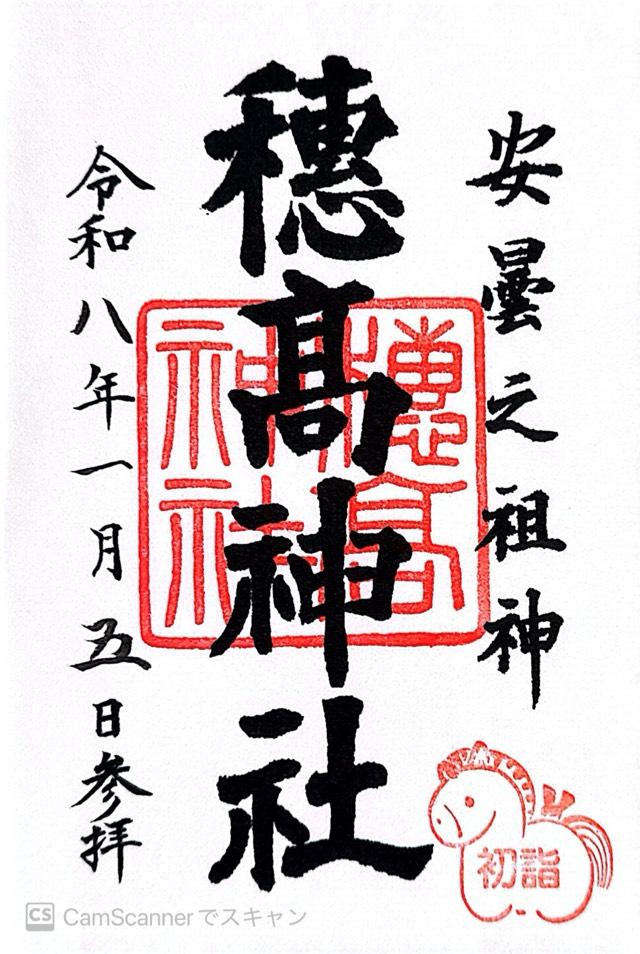 安曇之祖神
穗髙神社
穗高神社
令和八年一月五日参拝
初詣
CS CamScannerでスキャン